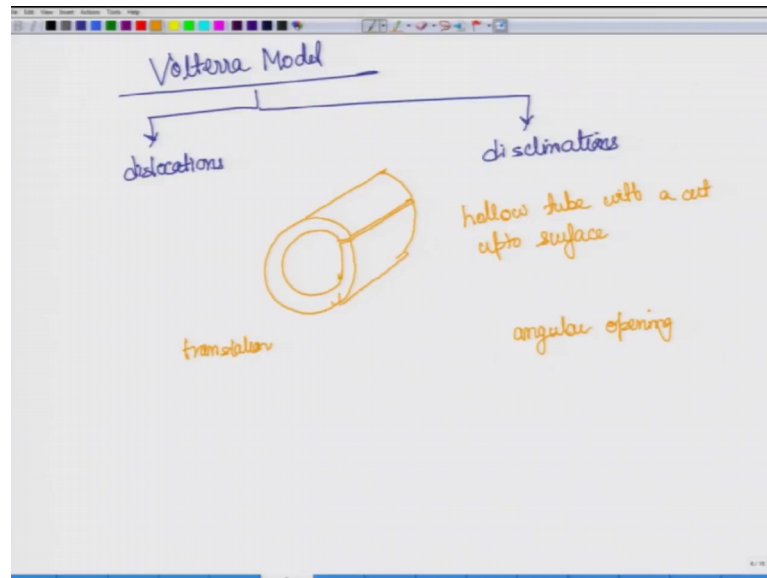 Volterra Model
deslocations
disclinations
hollow tube with a cut
upto surface
translation
angular opening